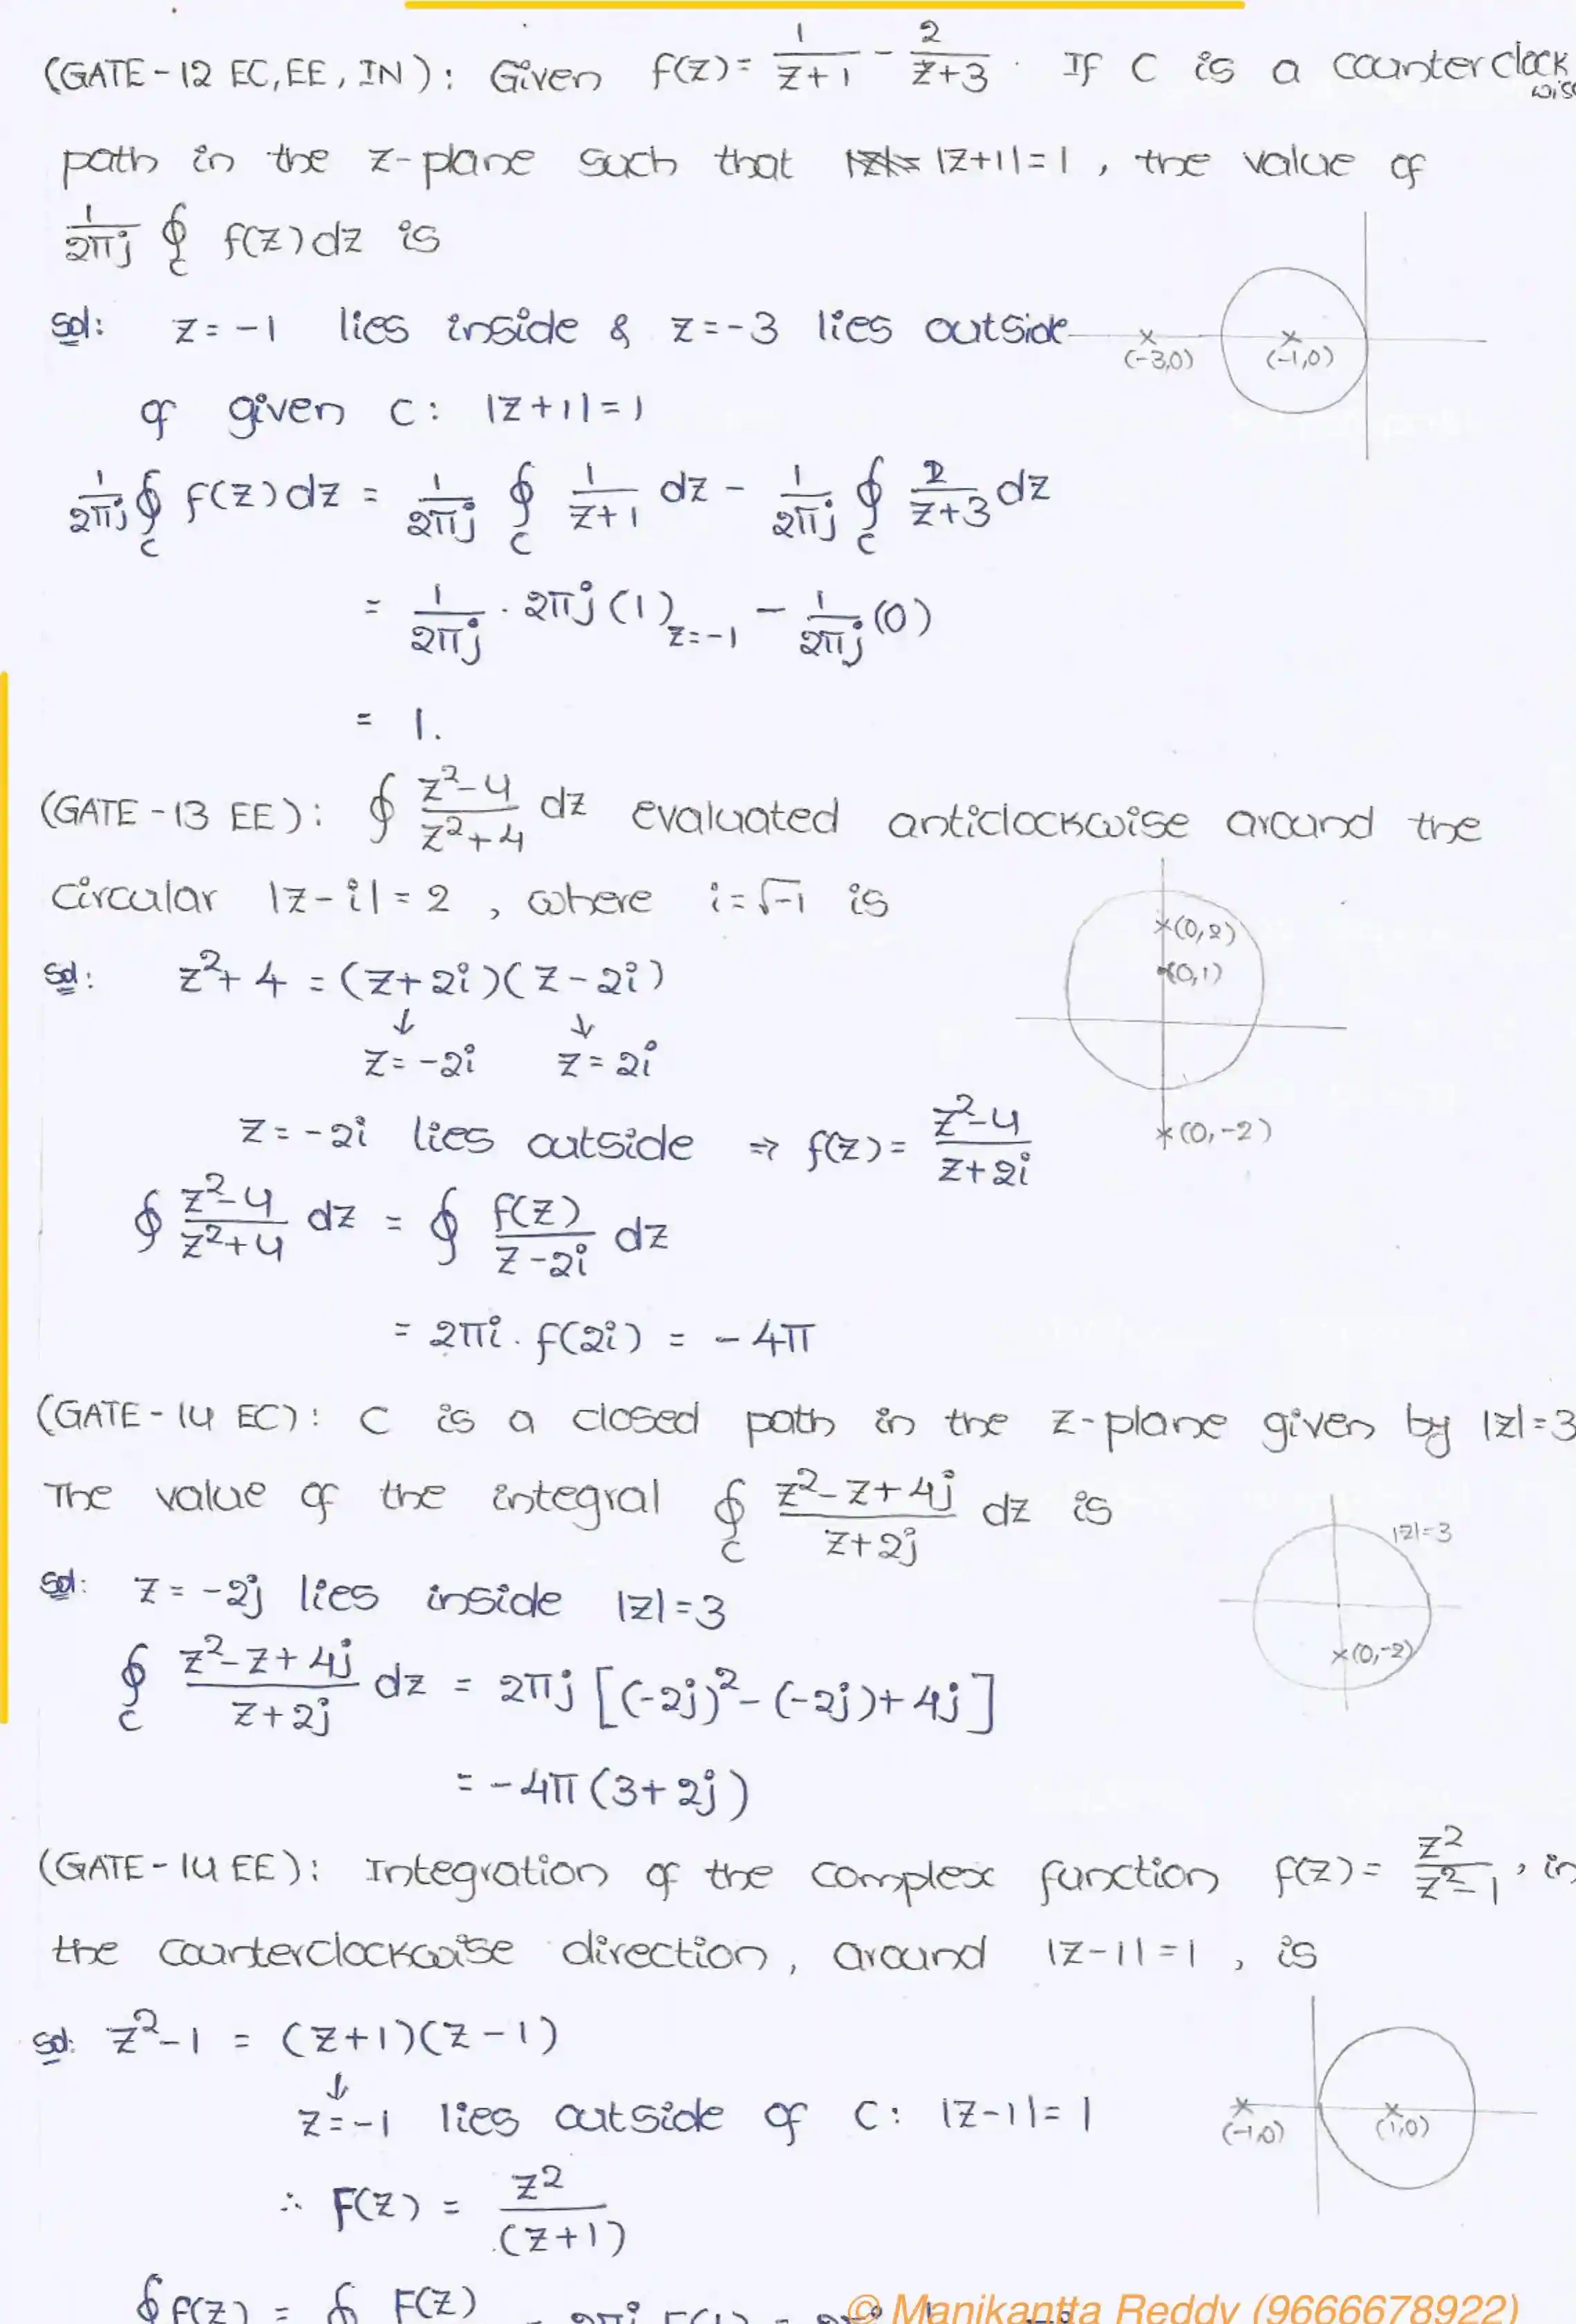 (GATE-12 EC,EE,IN): Given f(z)= 1/(z+1) - 2/(z+3). If C is a counterclockwise
path in the z-plane such that |z+1|=1, the value of
1/(2πj) ∮_C f(z)dz is
Sol: z=-1 lies inside & z=-3 lies outside
(-3,0) (-1,0)
of given C: |z+1|=1
1/(2πj) ∮_C f(z)dz = 1/(2πj) ∮_C 1/(z+1) dz - 1/(2πj) ∮_C 2/(z+3) dz
= 1/(2πj) · 2πj(1)_{z=-1} - 1/(2πj) (0)
= 1.
(GATE-13 EE): ∮ (z²-4)/(z²+4) dz evaluated anticlockwise around the
circular |z-i|=2, where i=√-1 is
(0,2)
(0,1)
Sol: z²+4 = (z+2i)(z-2i)
↓ ↓
z=-2i z=2i
z=-2i lies outside ⇒ f(z)= (z²-4)/(z+2i)
(0,-2)
∮ (z²-4)/(z²+4) dz = ∮ f(z)/(z-2i) dz
= 2πi. f(2i) = -4π
(GATE-14 EC): C is a closed path in the z-plane given by |z|=3
The value of the integral ∮_C (z²-z+4j)/(z+2j) dz is
|z|=3
Sol: z=-2j lies inside |z|=3
(0,-2)
∮_C (z²-z+4j)/(z+2j) dz = 2πj [(-2j)²-(-2j)+4j]
= -4π(3+2j)
(GATE-14 EE): Integration of the complex function f(z)= z²/(z²-1), in
the counterclockwise direction, around |z-1|=1, is
Sol: z²-1 = (z+1)(z-1)
↓
z=-1 lies outside of C: |z-1|=1
(-1,0) (1,0)
∴ F(z) = z²/(z+1)
∮f(z) = ∮ F(z)
© Manikantta Reddy (9666678922)